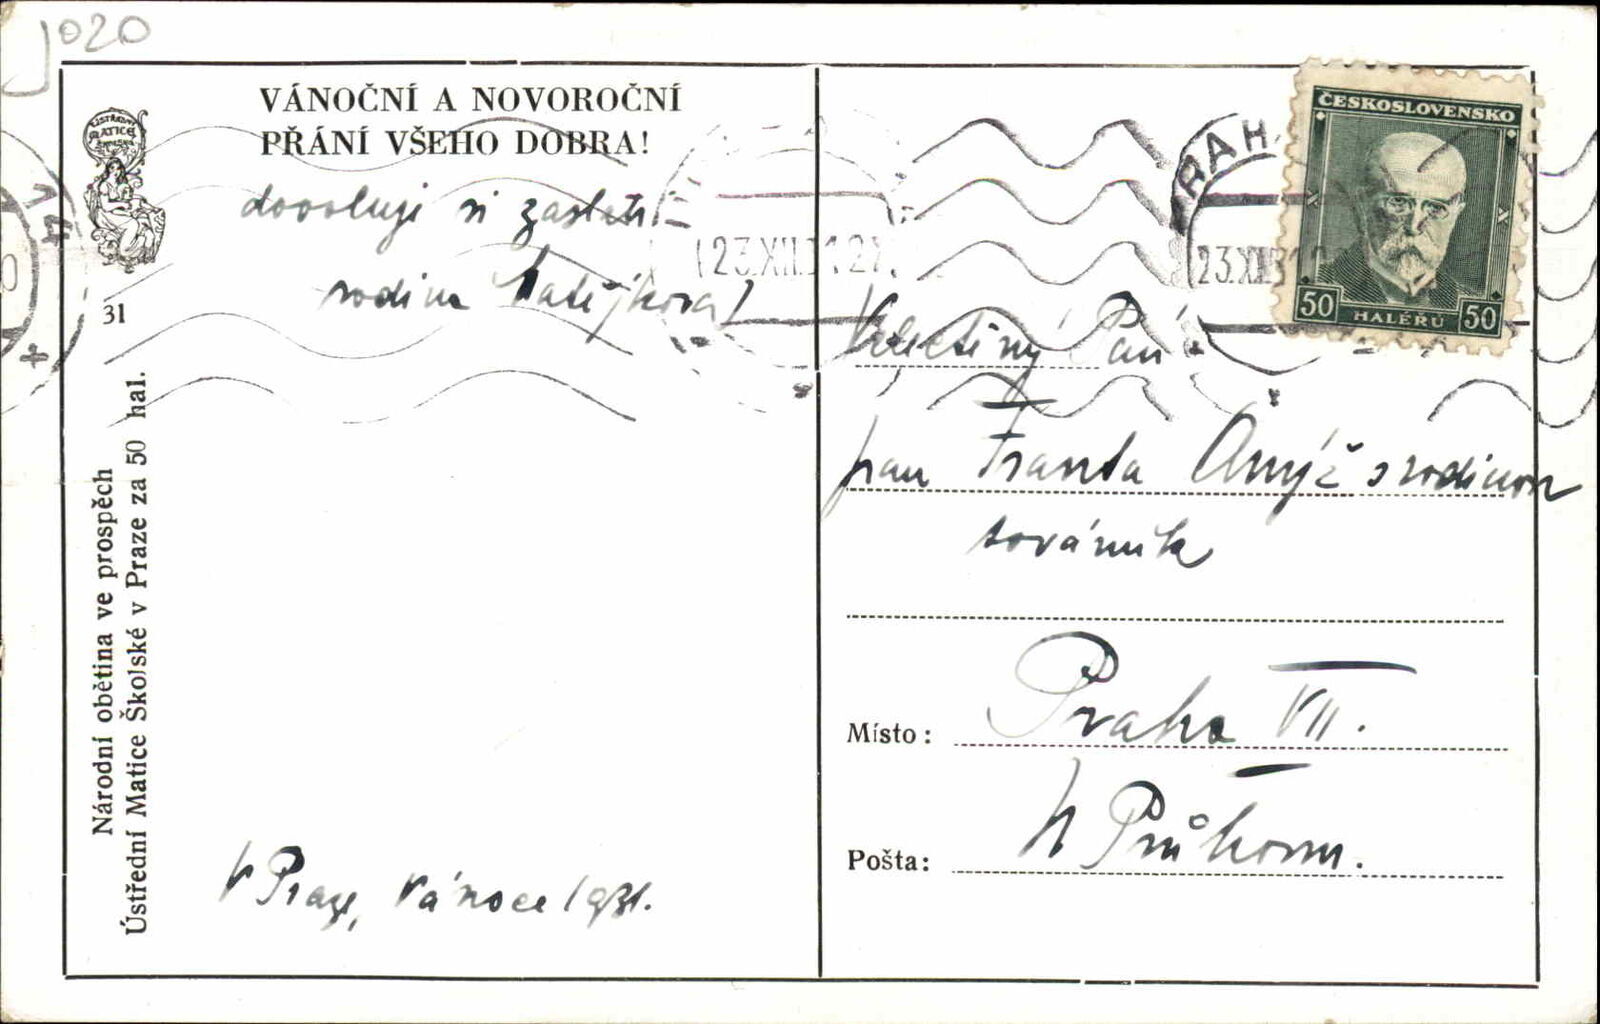 1020
VÁNOČNÍ A NOVOROČNÍ
PŘÁNÍ VŠEHO DOBRA!
dovolují si zaslati
rodina
31
Národní obětina ve prospěch
Ústřední Matice Školské v Praze za 50 hal.
V Praze, Vánoce 1931.
ČESKOSLOVENSKO
50 HALÉŘŮ 50
23.XII.31
23.XII.31
Velectěný Pan
pan Franta s rodinou
továrník
Místo: Praha VII.
Pošta: V Průhonu.